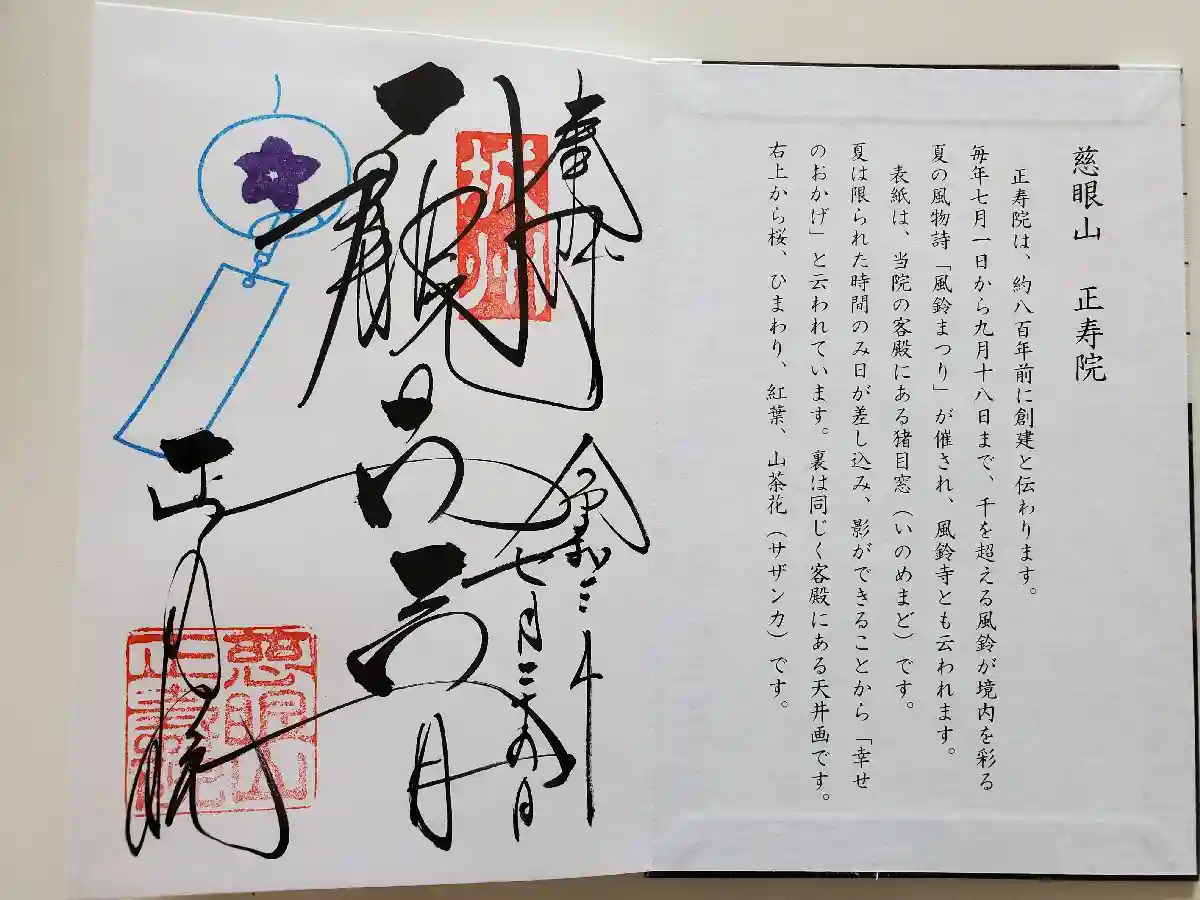 慈眼山　正寿院
正寿院は、約八百年前に創建と伝わります。
毎年七月一日から九月十八日まで、千を超える風鈴が境内を彩る
夏の風物詩「風鈴まつり」が催され、風鈴寺とも云われます。
表紙は、当院の客殿にある猪目窓（いのめまど）です。
夏は限られた時間のみ日が差し込み、影ができることから「幸せ
のおかげ」と云われています。裏は同じく客殿にある天井画です。
右上から桜、ひまわり、紅葉、山茶花（サザンカ）です。
奉拝
城州
令和三年
七月
正寿院
慈眼山
正壽院